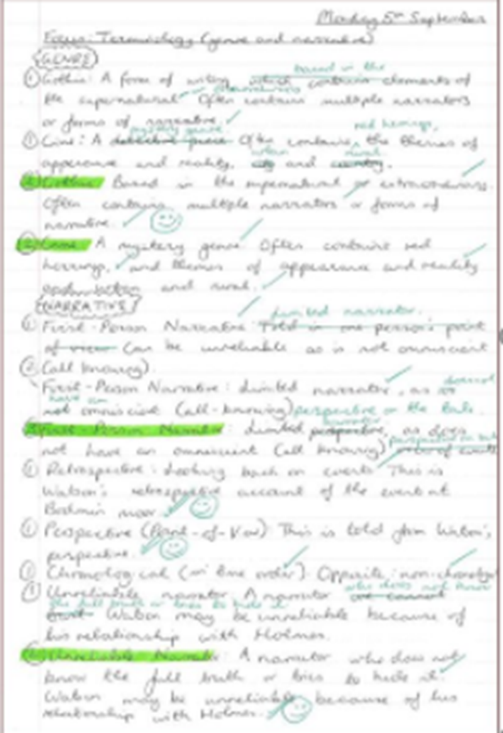 Monday 5th September
Focus: Terminology (genre and narrative)
GENRE
① Gothic: A form of writing which contains elements of
based in the
the supernatural. Often contains multiple narrators
or forms of narrative.
① Crime: A detective genre Often contains the themes of
mystery genre. red herrings,
appearance and reality, city and country.
urban rural
② Gothic: Based in the supernatural or extraordinary.
Often contains multiple narrators or forms of
narrative.
② Crime: A mystery genre. Often contains red
herrings, and themes of appearance and reality
and rural.
NARRATIVE
① First-Person Narrative: Told in one person's point
limited narrator.
of view. Can be unreliable as is not omniscient
(all knowing).
② First-Person Narrative: Limited narrator, as is
does not
have an
not omniscient (all-knowing) perspective on the tale.
First-Person Narrator: Limited perspective, as does
narrator
not have an omniscient (all knowing) of events
perspective on
① Retrospective: Looking back on events. This is
Watson's retrospective account of the event at
Bodmin moor.
① Perspective (Point-of-View): This is told from Watson's
perspective.
① Chronological (in time order). Opposite: non-chronological
① Unreliable narrator: A narrator
who does not know
the full truth or tries to hide it
Watson may be unreliable because of
his relationship with Holmes.
② Unreliable Narrator: A narrator who does not
know the full truth or tries to hide it.
Watson may be unreliable because of his
relationship with Holmes.